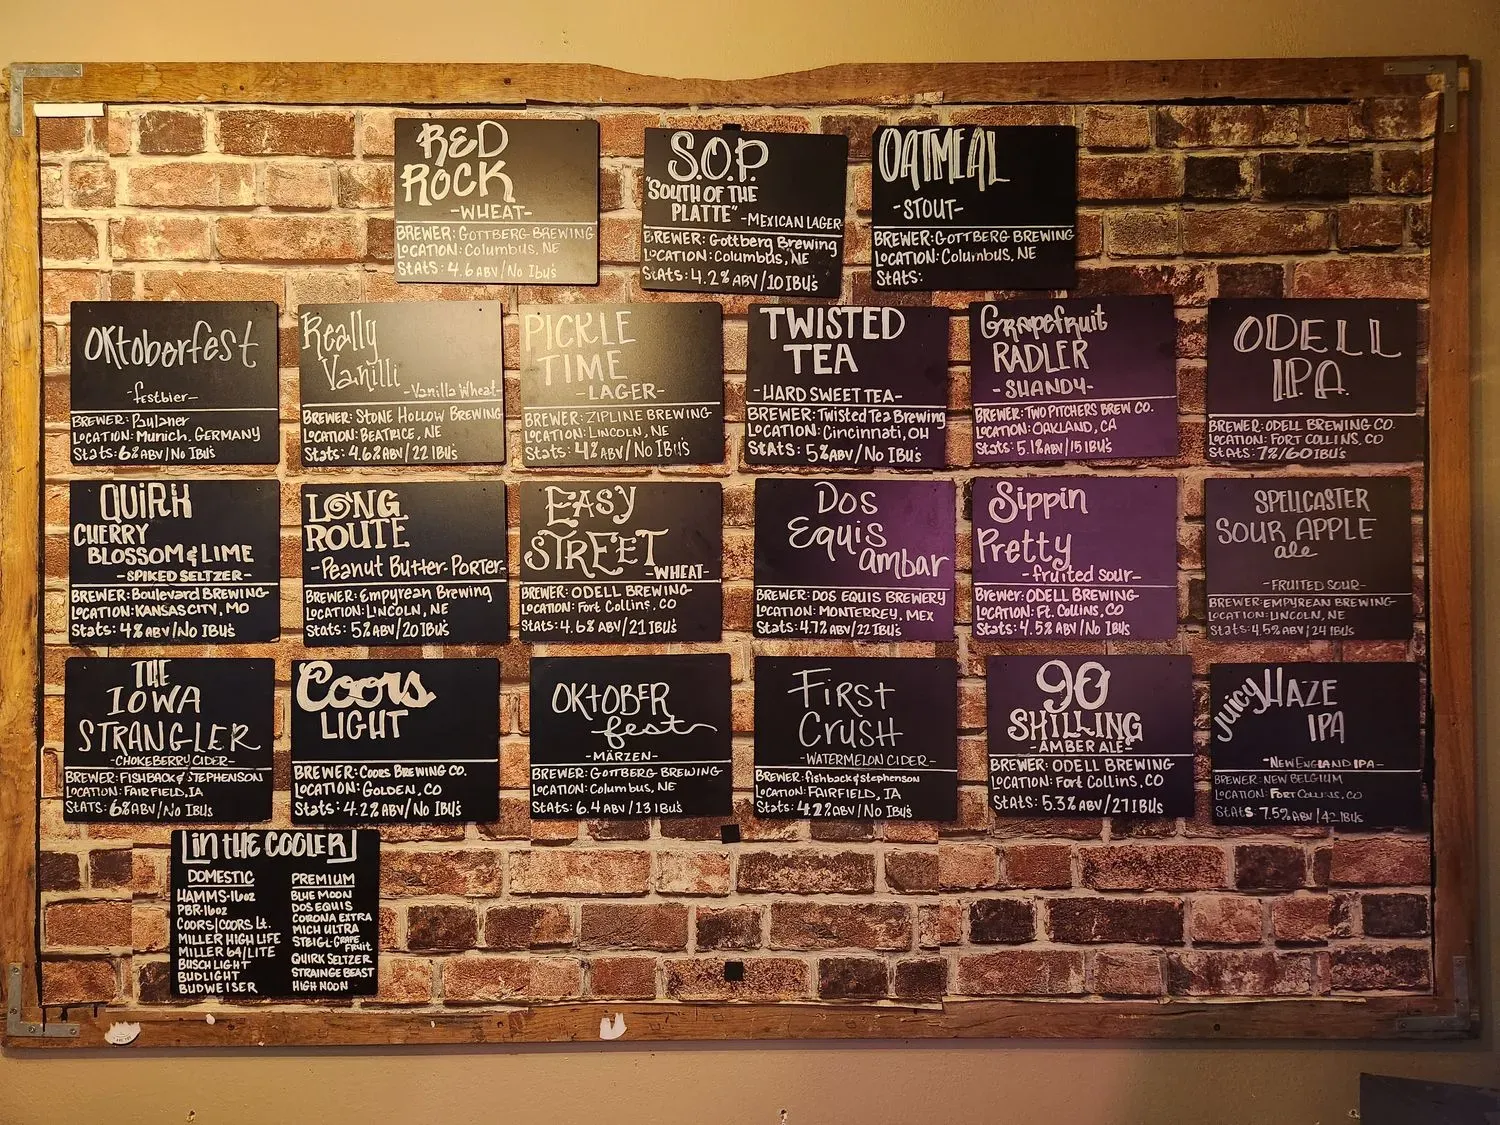 RED
ROCK
-WHEAT-
BREWER: GOTTBERG BREWING
LOCATION: Columbus, NE
Stats: 4.6 ABV/No Ibu's
S.O.P.
"SOUTH OF THE
PLATTE" -MEXICAN LAGER-
BREWER: Gottberg Brewing
LOCATION: Columbus, NE
Stats: 4.2% ABV/10 IBU's
OATMEAL
-STOUT-
BREWER: GOTTBERG BREWING
LOCATION: Columbus, NE
Stats:
Oktoberfest
-festbier-
BREWER: Paulaner
LOCATION: Munich, GERMANY
Stats: 6% ABV/No IBU's
Really
Vanilli
-Vanilla Wheat-
BREWER: STONE HOLLOW BREWING
LOCATION: BEATRICE, NE
Stats: 4.6% ABV/22 IBU's
PICKLE
TIME
-LAGER-
BREWER: ZIPLINE BREWING
LOCATION: LINCOLN, NE
Stats: 4% ABV/No IBU's
TWISTED
TEA
-HARD SWEET TEA-
BREWER: Twisted Tea Brewing
LOCATION: Cincinnati, OH
Stats: 5% ABV/No IBU's
Grapefruit
RADLER
-SHANDY-
BREWER: TWO PITCHERS BREW CO.
LOCATION: OAKLAND, CA
Stats: 5.1% ABV/15 IBU's
ODELL
I.P.A.
BREWER: ODELL BREWING CO.
LOCATION: FORT COLLINS, CO
STATS: 7%/60 IBU's
QUIRK
CHERRY
BLOSSOM & LIME
-SPIKED SELTZER-
BREWER: Boulevard BREWING
LOCATION: KANSAS CITY, MO
Stats: 4% ABV/No IBU's
LONG
ROUTE
-Peanut Butter Porter-
BREWER: Empyrean Brewing
LOCATION: LINCOLN, NE
Stats: 5% ABV/20 IBU's
EASY
STREET
-WHEAT-
BREWER: ODELL BREWING
LOCATION: Fort Collins, CO
Stats: 4.6% ABV/21 IBU's
Dos
Equis
ambar
BREWER: DOS EQUIS BREWERY
LOCATION: MONTERREY, MEX
Stats: 4.7% ABV/22 IBU's
Sippin
Pretty
-fruited sour-
Brewer: ODELL BREWING
LOCATION: Ft. Collins, CO
Stats: 4.5% ABV/No IBU's
SPELLCASTER
SOUR APPLE
ale
-FRUITED SOUR-
BREWER: EMPYREAN BREWING
LOCATION: LINCOLN, NE
Stats: 4.5% ABV/24 IBUs
THE
IOWA
STRANGLER
-CHOKEBERRY CIDER-
BREWER: FISHBACK & STEPHENSON
LOCATION: FAIRFIELD, IA
STATS: 6% ABV/No IBU's
Coors
LIGHT
BREWER: COORS BREWING CO.
LOCATION: GOLDEN, CO
Stats: 4.2% ABV/No IBU's
OKtOBER
fest
-MÄRZEN-
BREWER: GOTTBERG BREWING
LOCATION: Columbus, NE
Stats: 6.4 ABV/13 IBU's
FIRST
CRUSH
-WATERMELON CIDER-
BREWER: fishback & stephenson
LOCATION: FAIRFIELD, IA
Stats: 4.2% ABV/No IBU's
90
SHILLING
-AMBER ALE-
BREWER: ODELL BREWING
LOCATION: Fort Collins, CO
Stats: 5.3% ABV/27 IBUs
Juicy HAZE
IPA
-NEW ENGLAND IPA-
BREWER: NEW BELGIUM
LOCATION: FORT COLLINS, CO
Stats: 7.5% ABV/42 IBUs
IN THE COOLER
DOMESTIC
HAMMS-16oz
PBR-16oz
COORS/COORS Lt.
MILLER HIGH LIFE
MILLER 64/LITE
BUSCH LIGHT
BUDLIGHT
BUDWEISER
PREMIUM
BLUE MOON
DOS EQUIS
CORONA EXTRA
MICH ULTRA
STEIGL-GRAPE
FRUIT
QUIRK SELTZER
STRAINGE BEAST
HIGH NOON